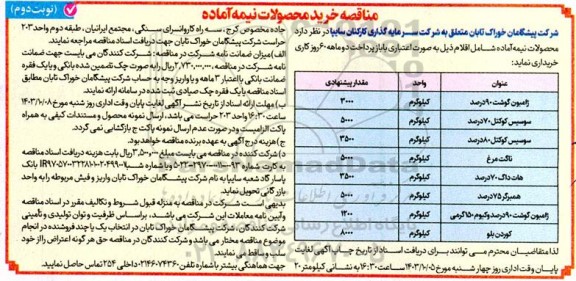 (نوبت دوم)
مناقصه خرید محصولات نیمه آماده
شرکت پیشگامان خوراک تابان متعلق به شرکت سرمایه گذاری کارکنان سایپا در نظر دارد
محصولات نیمه آماده شامل اقلام ذیل به صورت اعتباری با باز پرداخت دو ماهه ۶۰ روز کاری
خریداری نماید:
عنوان واحد مقدار پیشنهادی
ژامبون گوشت ۹۰ درصد کیلوگرم ۳۰۰۰
سوسیس کوکتل ۷۰ درصد کیلوگرم ۵۰۰۰
سوسیس کوکتل ۸۰ درصد کیلوگرم ۳۵۰۰
ناگت مرغ کیلوگرم ۵۰۰۰
هات داگ ۷۰ درصد کیلوگرم ۳۵۰۰
همبرگر ۷۵ درصد کیلوگرم ۵۰۰۰
ژامبون گوشت ۹۰ درصد وکیوم ۱۵۰ گرمی کیلوگرم ۱۲۰۰
کوردن بلو کیلوگرم ۸۰۰۰
لذا متقاضیان محترم می توانند برای دریافت اسناد از تاریخ چاپ آگهی لغایت
پایان وقت اداری روز چهار شنبه مورخ ۱۴۰۳/۱۰/۰۵ ساعت ۱۶:۳۰ به نشانی کیلومتر ۲۰
جاده مخصوص کرج، سه راه کاروانسرای سنگی، مجتمع ایرانیان، طبقه دوم واحد ۲۰۳
حراست شرکت پیشگامان خوراک تابان جهت دریافت اسناد مناقصه مراجعه نمایند.
الف) میزان ضمانت نامه شرکت در مناقصه: شرکت کنندگان می بایست جهت ضمانت
نامه شرکت در مناقصه، ۲,۷۳۰,۰۰۰,۰۰۰ ریال را به صورت چک تضمین شده بانکی و یا یک فقره
ضمانت بانکی با اعتبار ۳ ماهه و یا واریز وجه به حساب شرکت پیشگامان خوراک تابان مطابق
اسناد مناقصه یا یک فقره چک صیادی ثبت شده در سامانه ارائه نمایند.
ب) مهلت ارائه اسناد از تاریخ نشر آگهی لغایت پایان وقت اداری روز شنبه مورخ ۱۴۰۳/۱۰/۰۸
ساعت ۱۶:۳۰ واحد ۲۰۳ حراست می باشد، ارسال نمونه محصول و مستندات کیفی به همراه
پاکت الزامیست و در صورت عدم ارسال نمونه پاکت ج بازگشایی نمی گردد.
ج) هزینه درج آگهی به عهده برنده مناقصه خواهد بود.
د) شرکت کننده در مناقصه می بایست مبلغ ۳,۵۰۰,۰۰۰ ریال بابت هزینه دریافت اسناد مناقصه
بانک
پاسارگاد شعبه سایپا به نام شرکت پیشگامان خوراک تابان واریز و فیش مربوطه را به واحد
بازرگانی تحویل نماید.
بدیهی است شرکت در مناقصه به منزله قبول شروط و تکالیف مقرر در اسناد مناقصه
و آیین نامه معاملات این شرکت می باشد، بر اساس ظرفیت و توان تولیدی و تأمینی
شرکت کنندگان، شرکت پیشگامان خوراک تابان در انتخاب یک یا چند فروشنده در انجام
موضوع مناقصه مختار می باشد و شرکت کنندگان در مناقصه حق هر گونه اعتراض را از خود
سلب و ساقط می نمایند.
جهت هماهنگی بیشتر با شماره تلفن ۰۲۱۴۶۰۷۴۳۶۰ داخلی ۲۵۴ تماس حاصل نمایید.